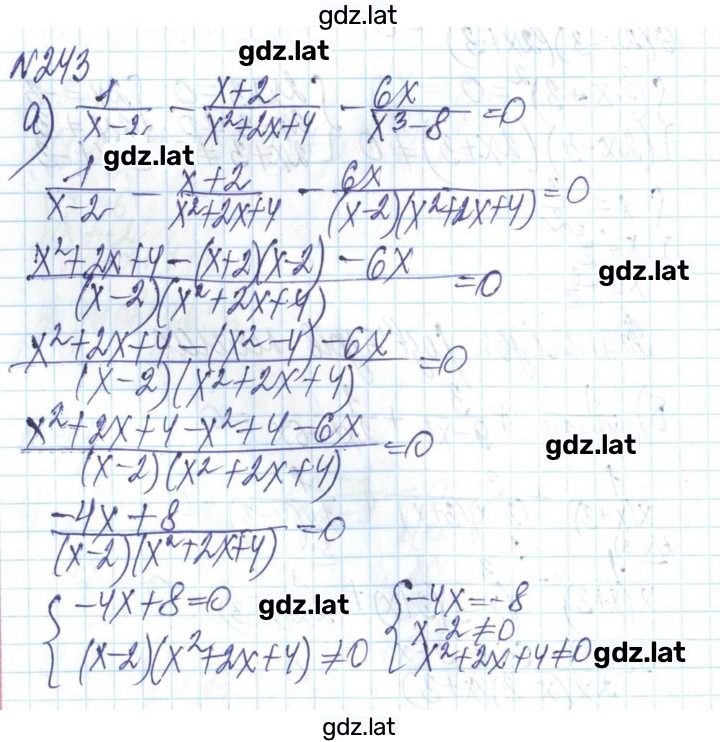 gdz.lat
№243
gdz.lat
а) 1/(x-2) - (x+2)/(x²+2x+4) - 6x/(x³-8) = 0
gdz.lat
1/(x-2) - (x+2)/(x²+2x+4) - 6x/((x-2)(x²+2x+4)) = 0
(x²+2x+4-(x+2)(x-2)-6x)/((x-2)(x²+2x+4)) = 0
gdz.lat
(x²+2x+4-(x²-4)-6x)/((x-2)(x²+2x+4)) = 0
(x²+2x+4-x²+4-6x)/((x-2)(x²+2x+4)) = 0
gdz.lat
(-4x+8)/((x-2)(x²+2x+4)) = 0
{ -4x+8=0
(x-2)(x²+2x+4)≠0
gdz.lat
{ -4x=-8
x-2≠0
x²+2x+4≠0
gdz.lat
gdz.lat